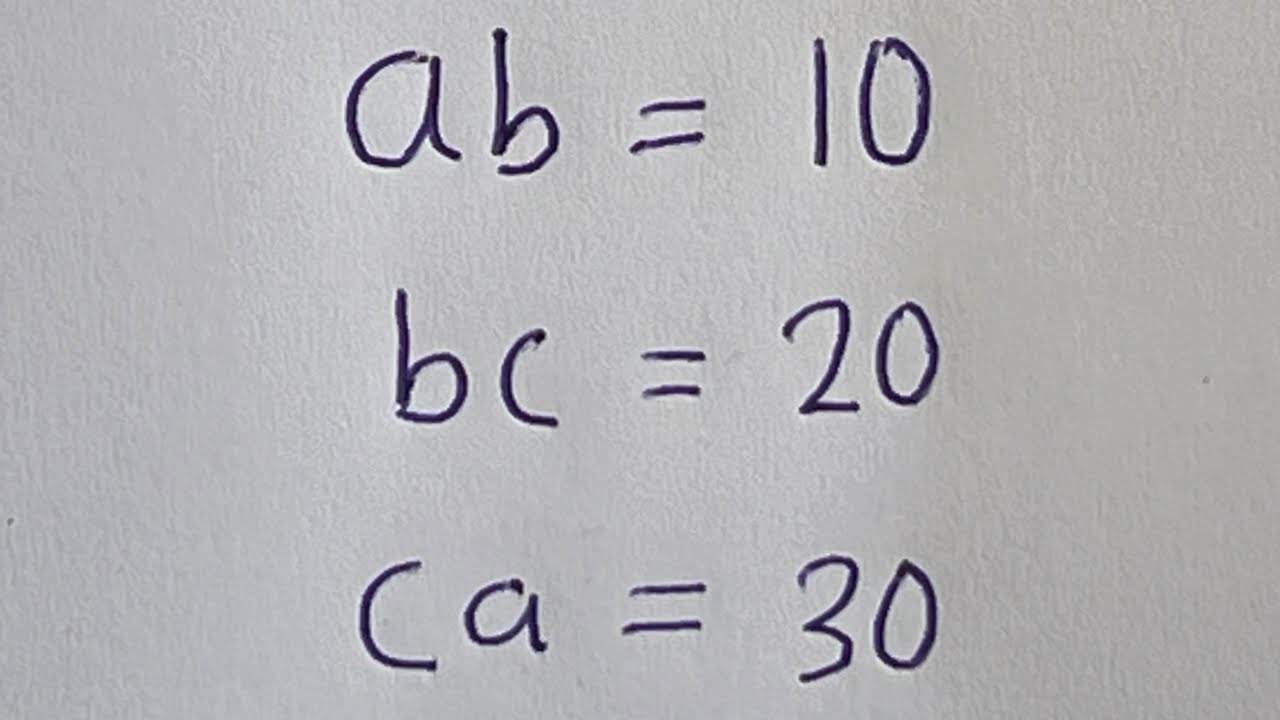 ab = 10
bc = 20
ca = 30